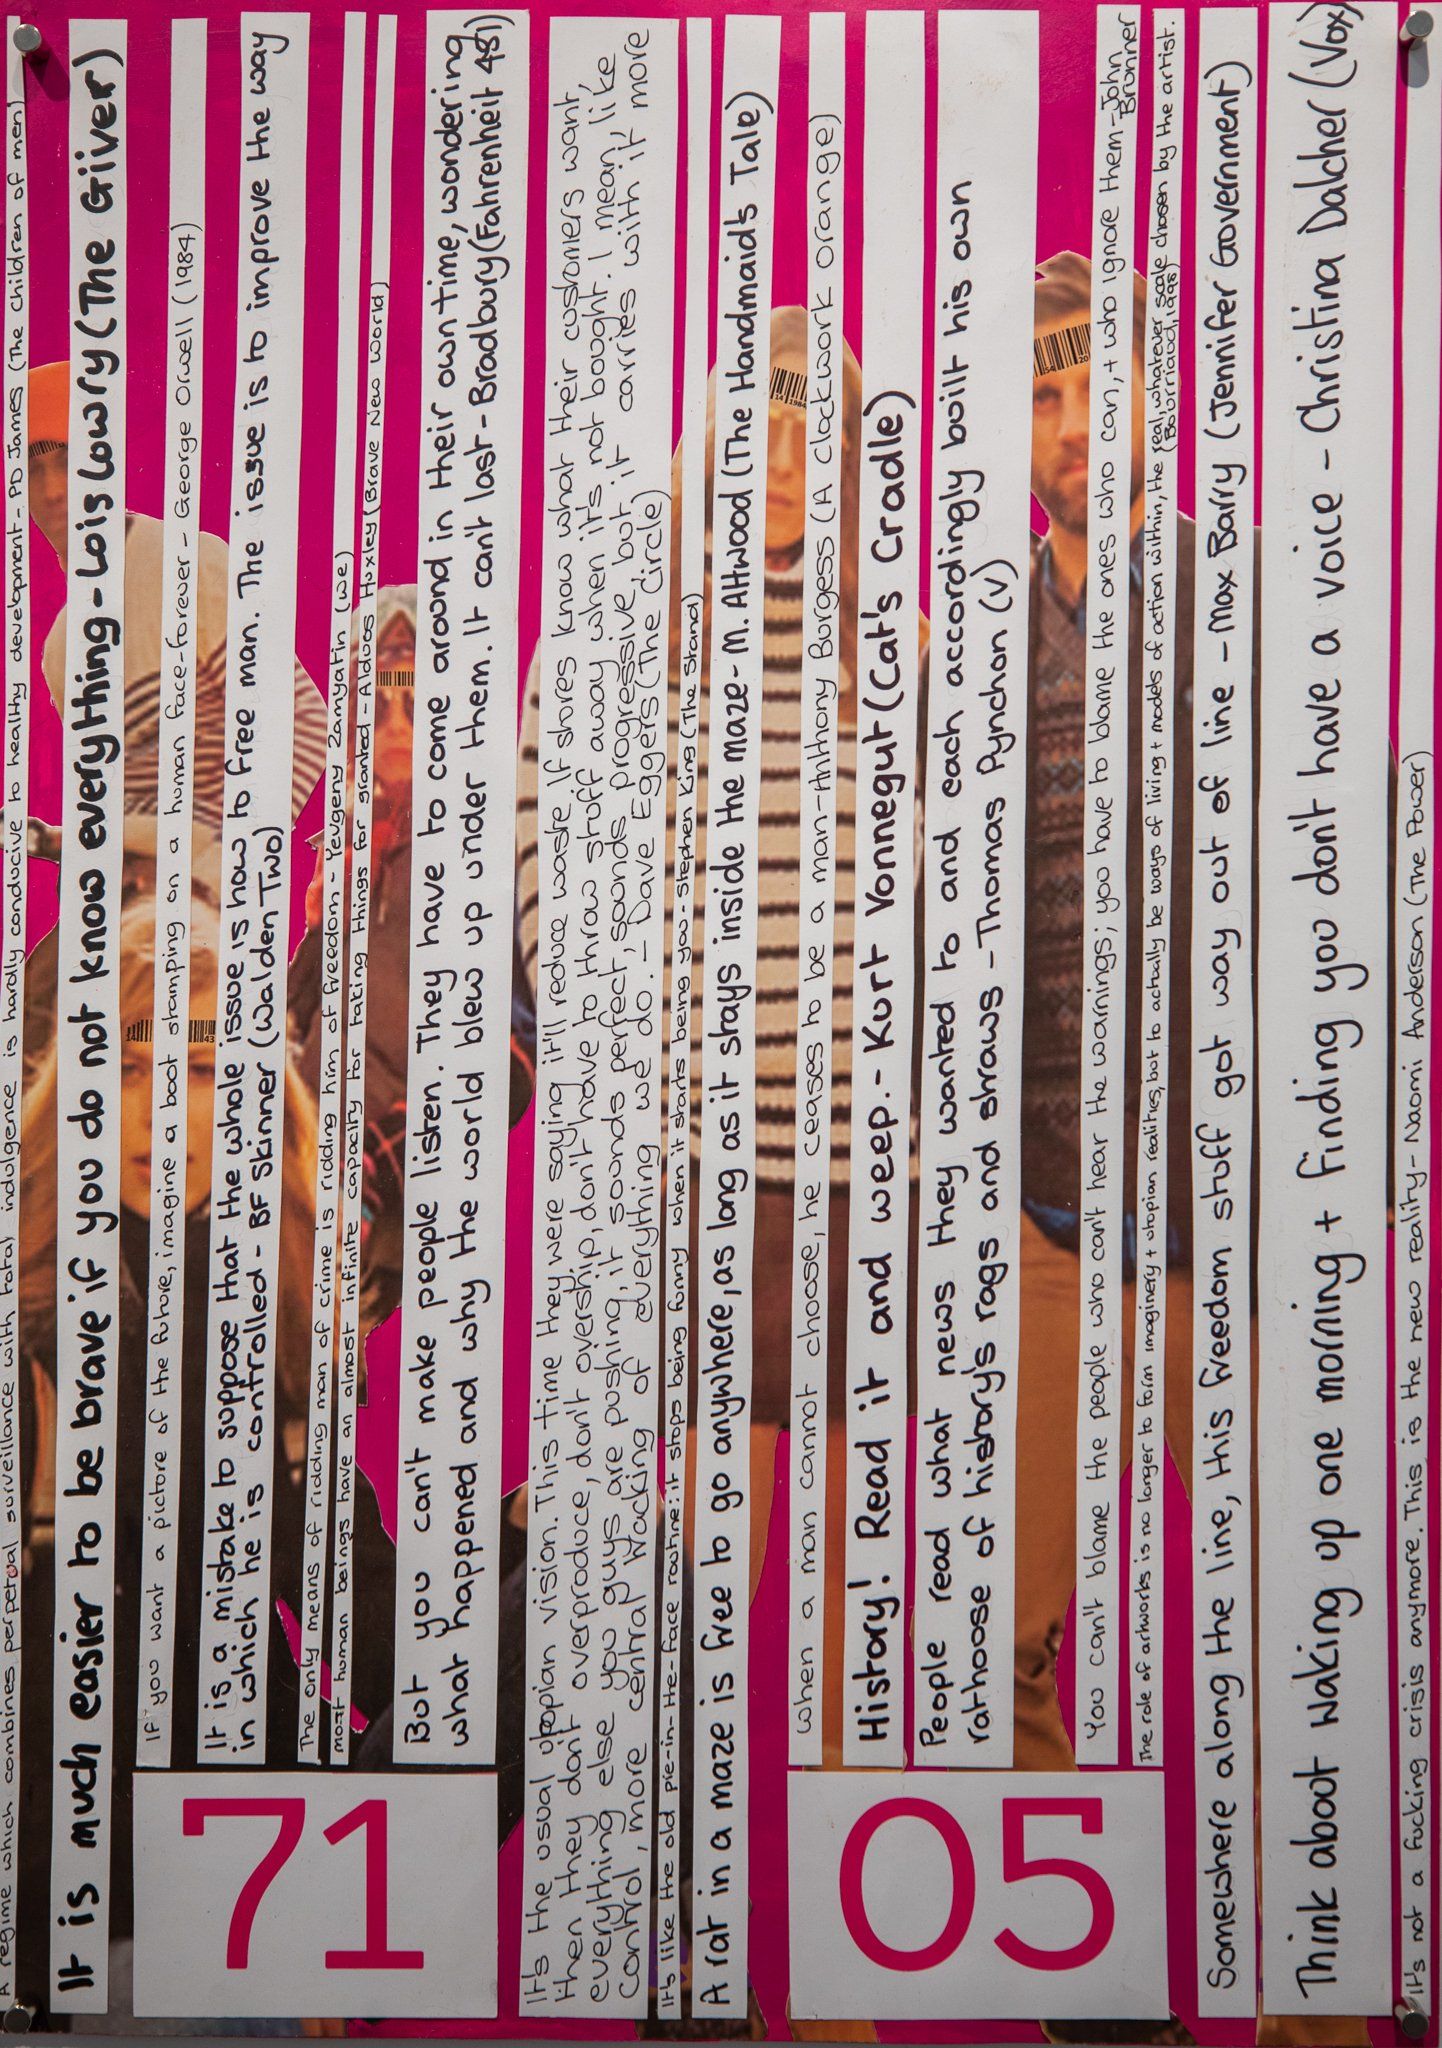 A regime which combines perpetual surveillance with total indulgence is hardly conducive to healthy development - PD James (The children of men)
It is much easier to be brave if you do not know everything - Lois Lowry (The Giver)
If you want a picture of the future, imagine a boot stamping on a human face - forever - George Orwell (1984)
It is a mistake to suppose that the whole issue is how to free man. The issue is to improve the way
in which he is controlled - BF Skinner (Walden Two)
The only means of ridding man of crime is ridding him of freedom - Yevgeny Zamyatin (We)
most human beings have an almost infinite capacity for taking things for granted - Aldous Huxley (Brave New World)
But you can't make people listen. They have to come around in their own time, wondering
what happened and why the world blew up under them. It can't last - Bradbury (Fahrenheit 451)
It's the usual utopian vision. This time they were saying it'll reduce waste. If stores know what their customers want,
then they don't overproduce, don't overship, don't have to throw stuff away when it's not bought. I mean, like
everything else you guys are pushing, it sounds perfect, sounds progressive, but it carries with it more
control, more central tracking of everything we do. - Dave Eggers (The Circle)
It's like the old pie-in-the-face routine: it stops being funny when it starts being you - Stephen King (The Stand)
A rat in a maze is free to go anywhere, as long as it stays inside the maze - M. Attwood (The Handmaid's Tale)
When a man cannot choose, he ceases to be a man - Anthony Burgess (A clockwork orange)
History! Read it and weep. - Kurt Vonnegut (Cat's Cradle)
People read what news they wanted to and each accordingly built his own
rathouse of history's rags and straws - Thomas Pynchon (V)
You can't blame the people who can't hear the warnings; you have to blame the ones who can, + who ignore them - John Brunner
The role of artworks is no longer to form imaginery + utopian realities, but to actually be ways of living + models of action within, the real, whatever scale chosen by the artist.
(Bourriaud, 1998)
Somewhere along the line, this freedom stuff got way out of line - Max Barry (Jennifer Government)
Think about waking up one morning + finding you don't have a voice - Christina Dalcher (Vox)
It's not a fucking crisis anymore. This is the new reality - Naomi Anderson (The Power)
71
05
14
43
14 1984
54
20